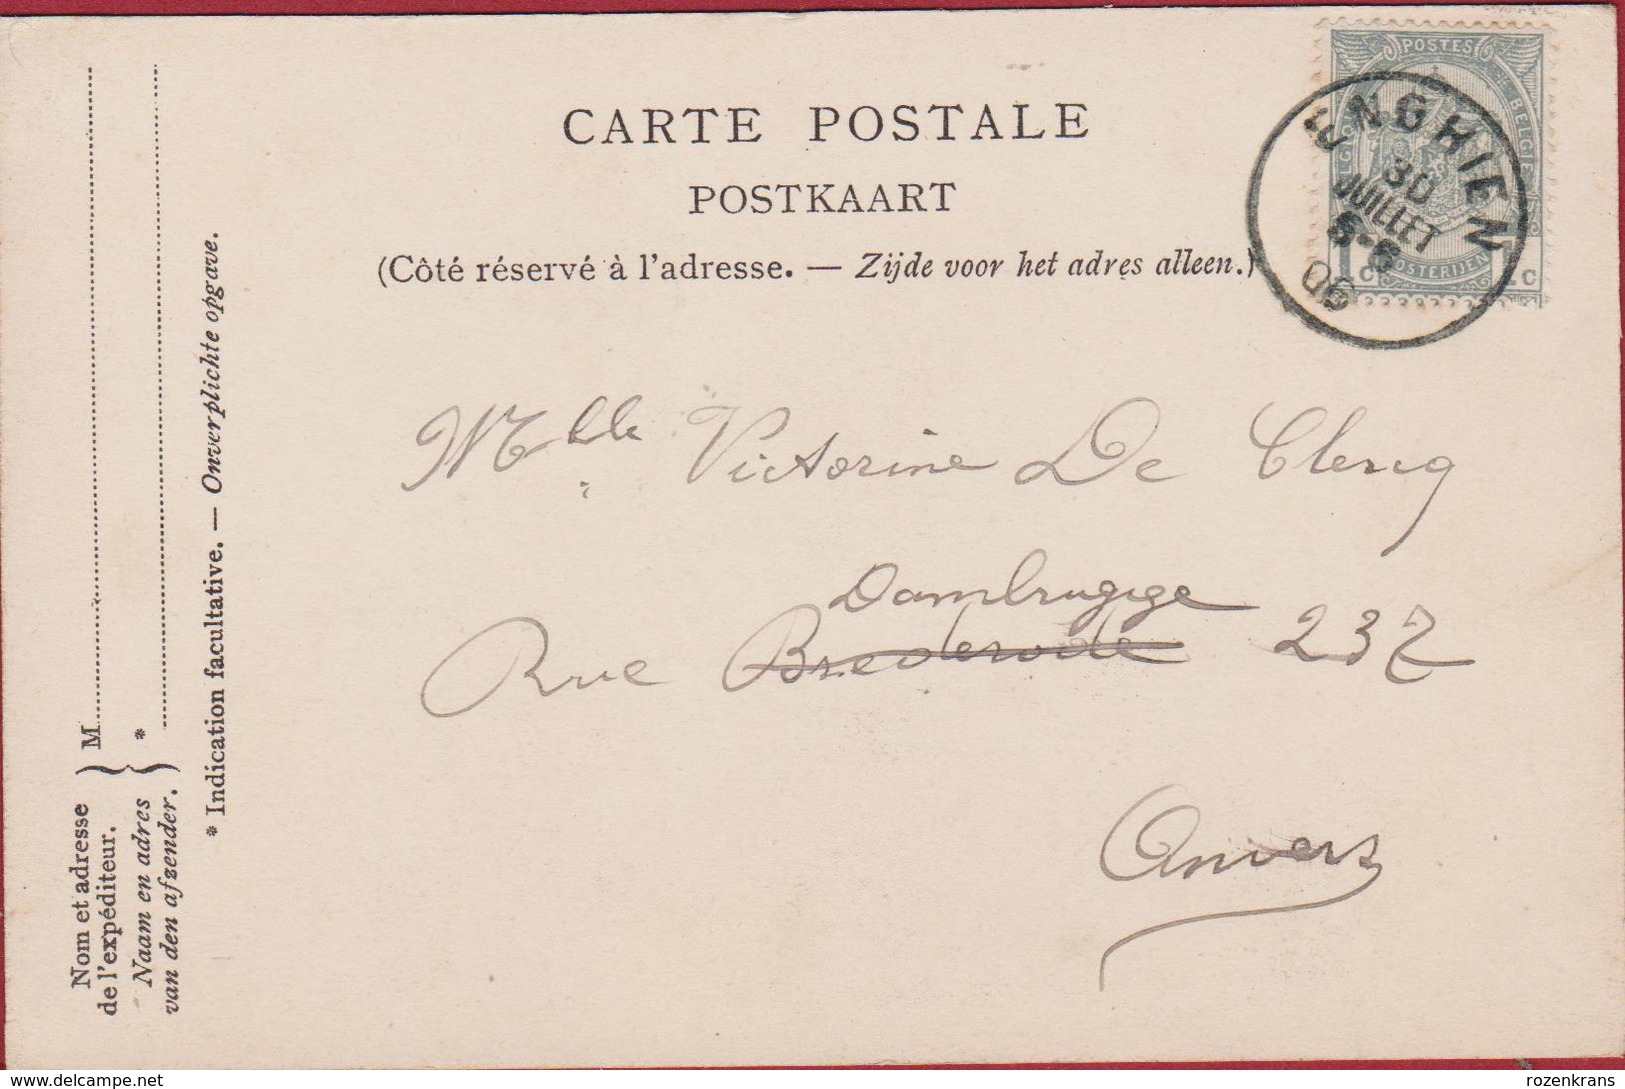 CARTE POSTALE
POSTKAART
(Côté réservé à l'adresse. — Zijde voor het adres alleen.)
POSTES
BELGIE
POSTERIJEN
1 c 1 c
ENGHIEN
30
JUILLET
06
Mlle Victorine De Clercq
Dambrugge
Rue Brederode 237
Anvers
Nom et adresse
de l'expéditeur.
Naam en adres
van den afzender.
M
*
* Indication facultative. — Onverplichte opgave.
www.delcampe.net
rozenkrans